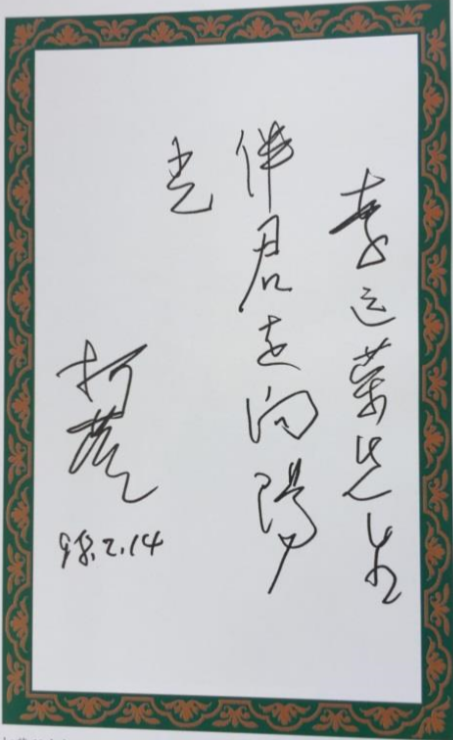 李运荣先生
伴君走向陽
光
柯蓝
98.2.14